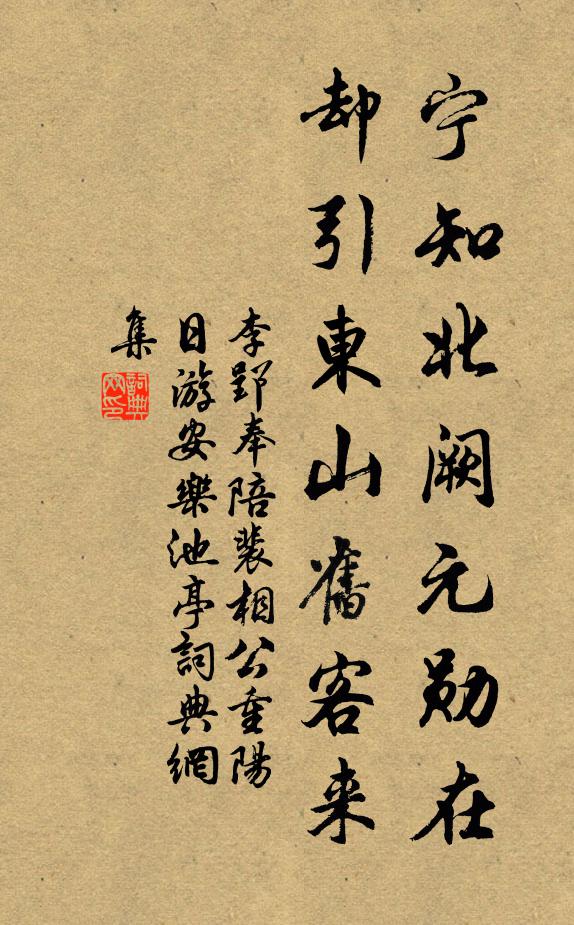 宁知北阙元勋在
却引東山舊客来
李郢奉陪裴相公重陽
日游安樂池亭詞典網
集
詞典